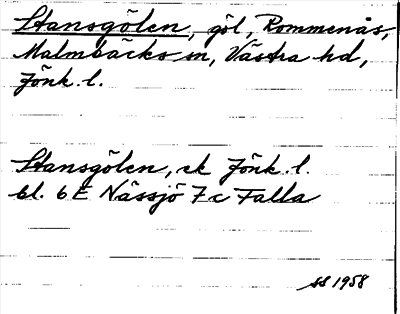 Stansgölen, göl, Rommenäs,
Malmbäcks sn, Västra hd,
Jönk. l.
Stansgölen, ek Jönk. l.
bl. 6E Nässjö 7c Falla
SS 1958